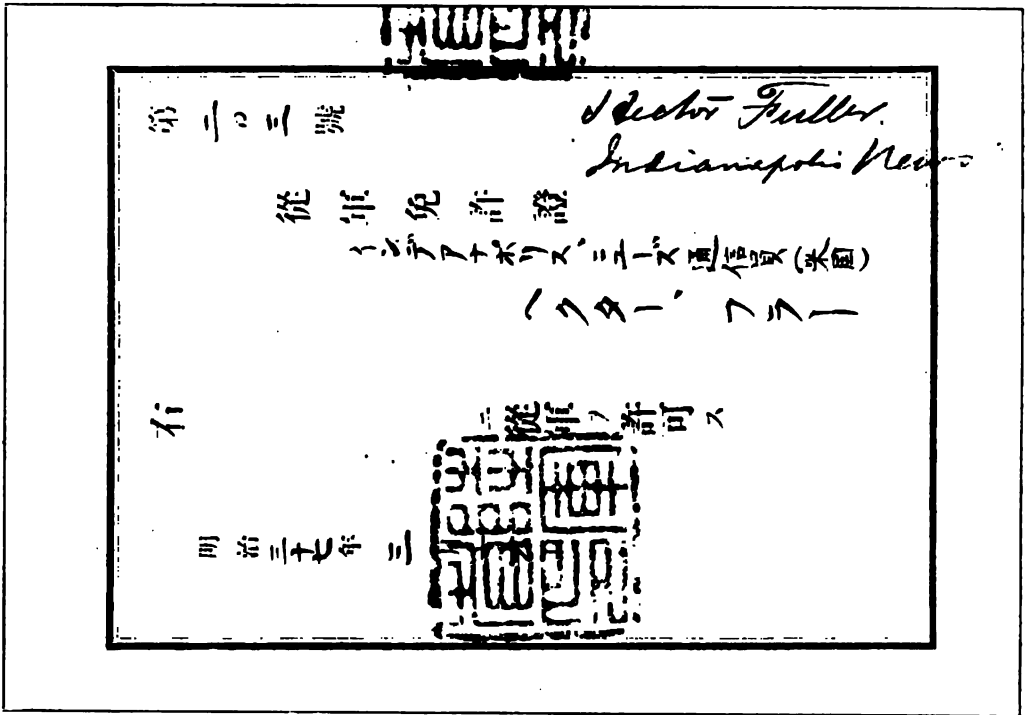 Hector Fuller.
Indianapolis News
第二〇三號
從軍免許證
インデアナポリス、ニューズ通信員(米国)
ヘクター、フラー
右ニ從軍ヲ許可ス
明治三十七年三